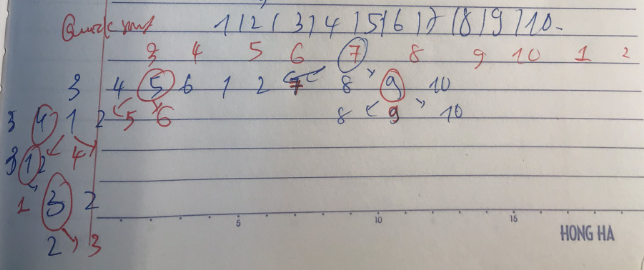 Quick sort 1|2|3|4|5|6|7|8|9|10
3 4 5 6 7 8 9 10 1 2
3 4 5 6 1 2 7 8 9 10
3 4 1 2 5 6 8 9 10
3 1 2 4
1 3 2
2 3
5 10 15
HONG HA